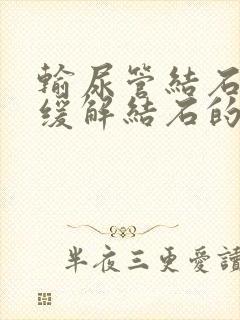 輸尿管結石
缓解結石的
半夜三更愛讀